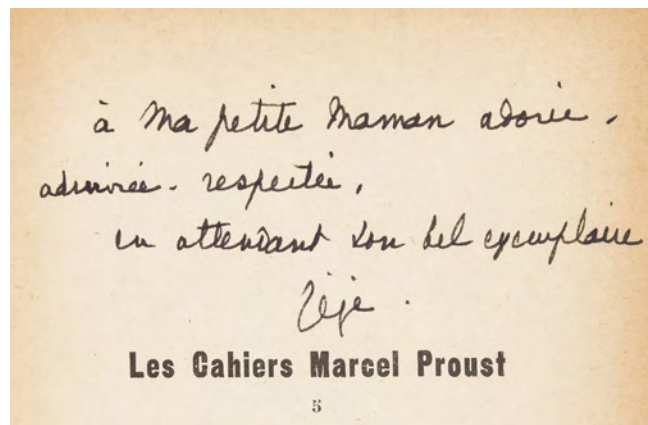 à ma petite Maman adorée.
admirée. respectée,
en attendant son bel exemplaire
Les Cahiers Marcel Proust
5